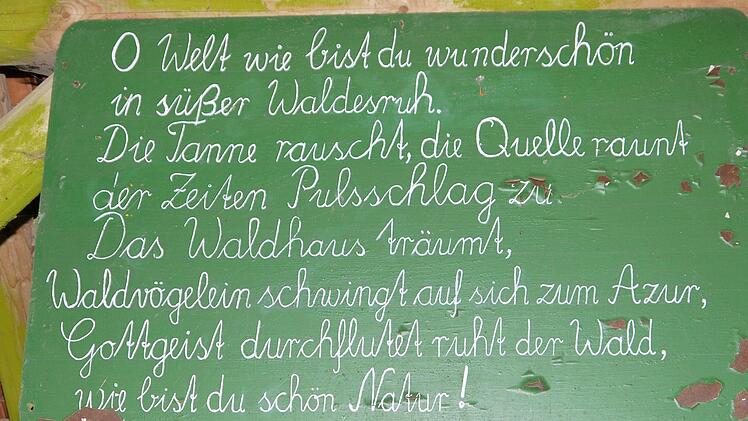 O Welt wie bist du wunderschön
in süßer Waldesruh.
Die Tanne rauscht, die Quelle raunt
der Zeiten Pulsschlag zu.
Das Waldhaus träumt,
Waldvögelein schwingt auf sich zum Azur,
Gottgeist durchflutet ruht der Wald,
wie bist du schön Natur!